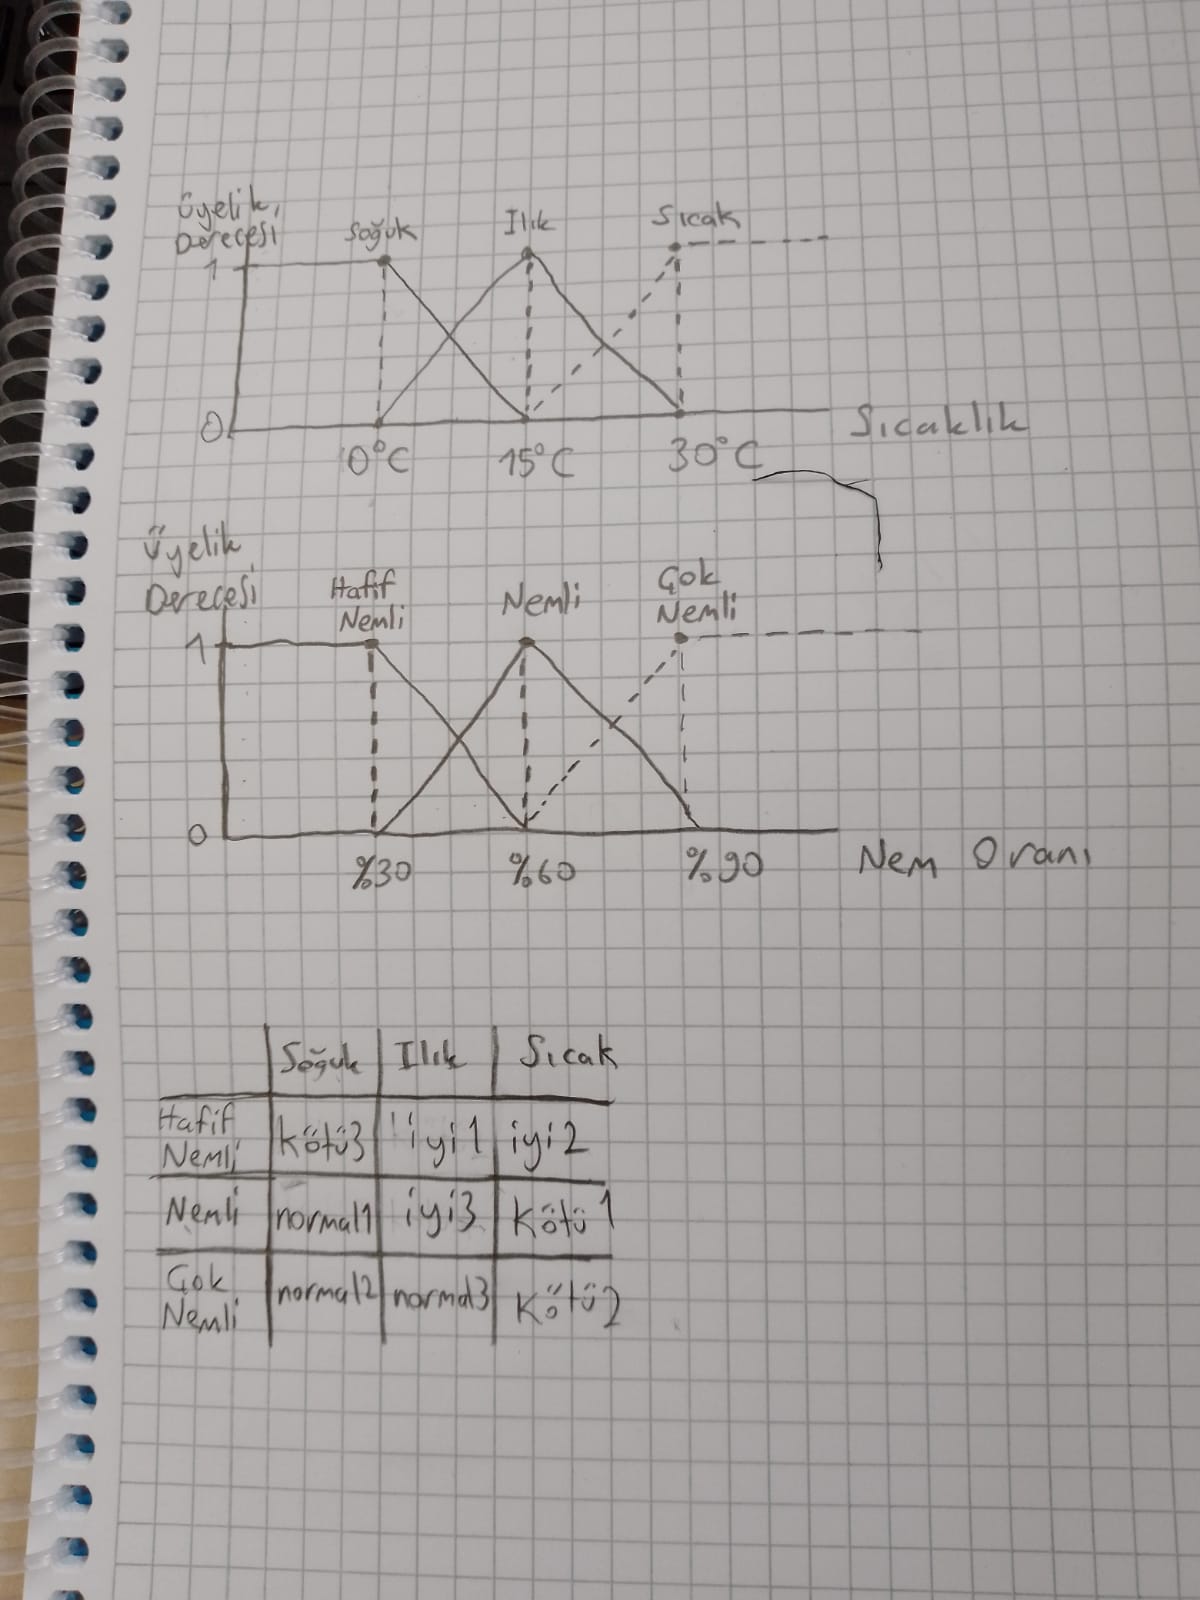 Üyelik
Derecesi
Soğuk Ilık Sıcak
1
0
0°C 15°C 30°C Sıcaklık
Üyelik
Derecesi
Hafif
Nemli Nemli Çok
Nemli
1
0
%30 %60 %90 Nem Oranı
Soğuk Ilık Sıcak
Hafif
Nemli kötü3 iyi1 iyi2
Nemli normal1 iyi3 kötü1
Çok
Nemli normal2 normal3 kötü2